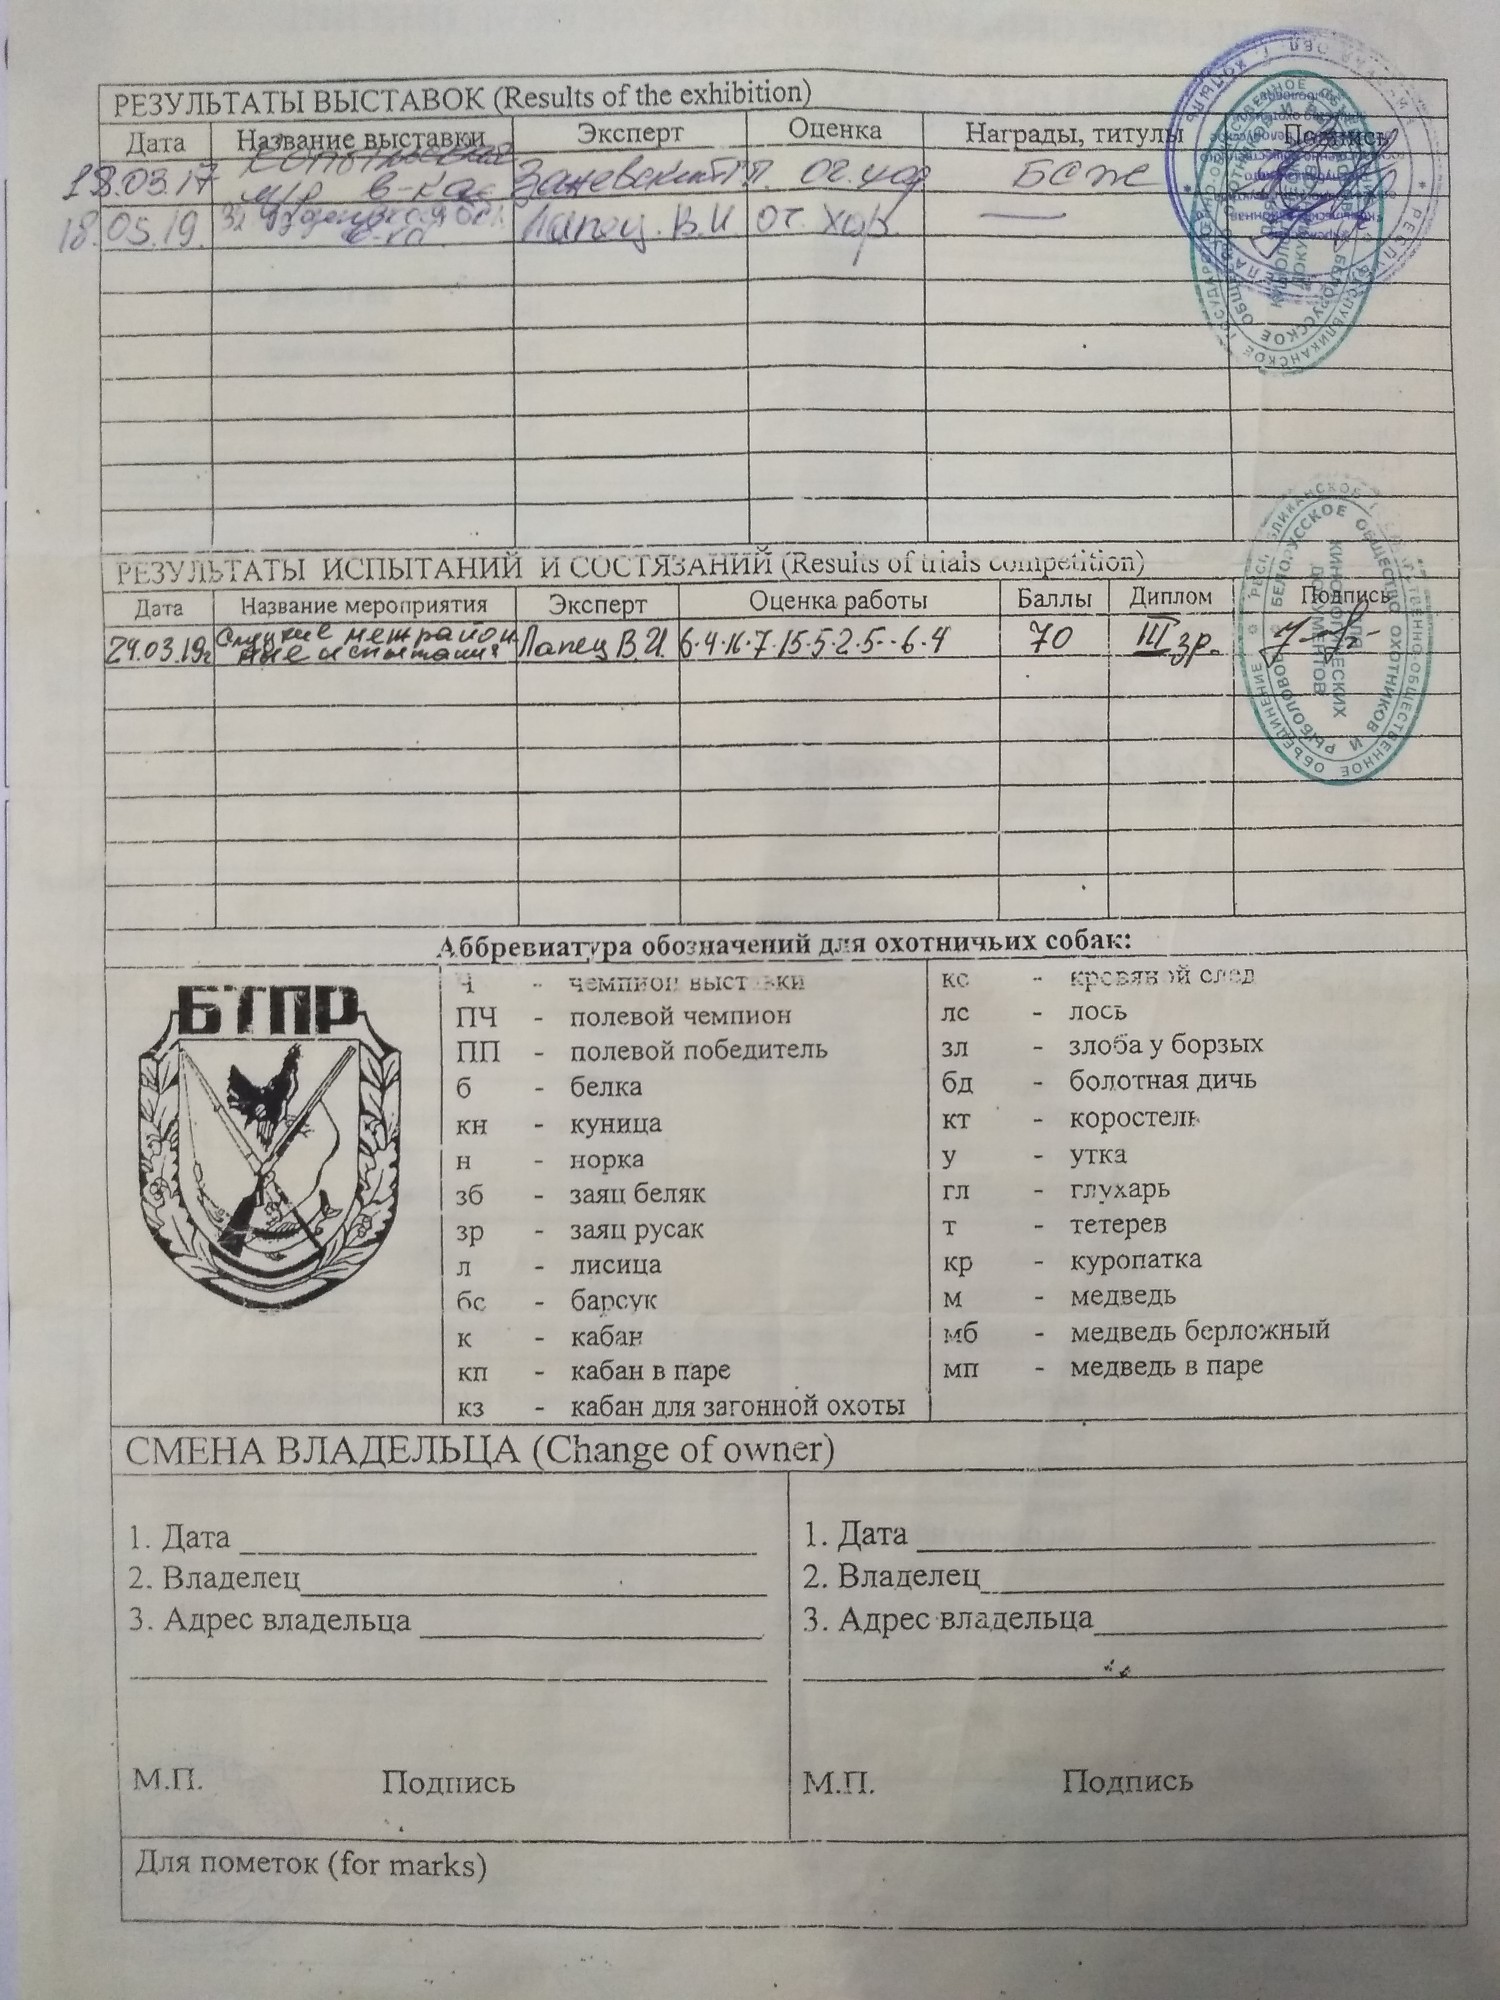 РЕЗУЛЬТАТЫ ВЫСТАВОК (Results of the exhibition)
Дата Название выставки Эксперт Оценка Награды, титулы Подпись
18.03.17 Копыльская м/р в-ка Заневский оч. хор БСЖ
18.05.19. в-ка Лапец. В.И оч. хор. —
РЕЗУЛЬТАТЫ ИСПЫТАНИЙ И СОСТЯЗАНИЙ (Results of trials competition)
Дата Название мероприятия Эксперт Оценка работы Баллы Диплом Подпись
24.03.19г Слуцкие межрайон
ные испытания Лапец В.И. 6·4·16·7·15·5·2·5·-6·4 70 III зр.
РЕСПУБЛИКАНСКОЕ ГОСУДАРСТВЕННО-ОБЩЕСТВЕННОЕ ОБЪЕДИНЕНИЕ
БЕЛОРУССКОЕ ОБЩЕСТВО ОХОТНИКОВ И РЫБОЛОВОВ
ДЛЯ
КИНОЛОГИЧЕСКИХ
ДОКУМЕНТОВ
Аббревиатура обозначений для охотничьих собак:
БТПР
Ч - чемпион выставки
ПЧ - полевой чемпион
ПП - полевой победитель
б - белка
кн - куница
н - норка
зб - заяц беляк
зр - заяц русак
л - лисица
бс - барсук
к - кабан
кп - кабан в паре
кз - кабан для загонной охоты
кс - кровяной след
лс - лось
зл - злоба у борзых
бд - болотная дичь
кт - коростель
у - утка
гл - глухарь
т - тетерев
кр - куропатка
м - медведь
мб - медведь берложный
мп - медведь в паре
СМЕНА ВЛАДЕЛЬЦА (Change of owner)
1. Дата
2. Владелец
3. Адрес владельца
М.П. Подпись
1. Дата
2. Владелец
3. Адрес владельца
М.П. Подпись
Для пометок (for marks)